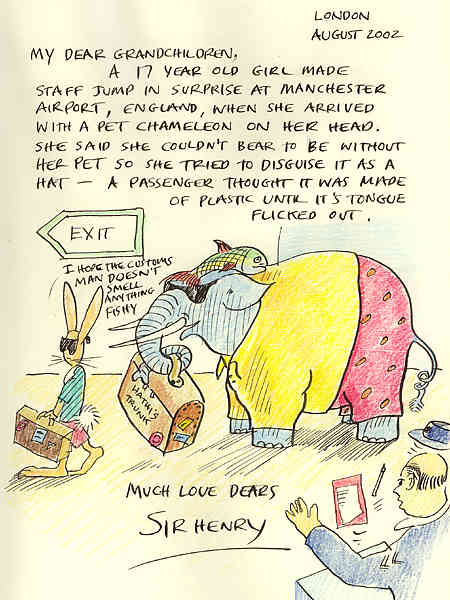 LONDON
AUGUST 2002
MY DEAR GRANDCHILDREN,
A 17 YEAR OLD GIRL MADE
STAFF JUMP IN SURPRISE AT MANCHESTER
AIRPORT, ENGLAND, WHEN SHE ARRIVED
WITH A PET CHAMELEON ON HER HEAD.
SHE SAID SHE COULDN'T BEAR TO BE WITHOUT
HER PET SO SHE TRIED TO DISGUISE IT AS A
HAT — A PASSENGER THOUGHT IT WAS MADE
OF PLASTIC UNTIL IT'S TONGUE
FLICKED OUT.
EXIT
I HOPE THE CUSTOMS
MAN DOESN'T
SMELL
ANYTHING
FISHY
TRUNK
MUCH LOVE DEARS
SIR HENRY